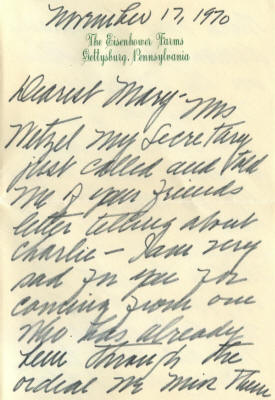 November 17, 1970
The Eisenhower Farms
Gettysburg, Pennsylvania
Dearest Mary - Mrs
Netzel my Secretary
just called and told
me of your friends
letter telling about
Charlie - I am very
sad for you for
coming from one
who has already
been through the
ordeal we miss them